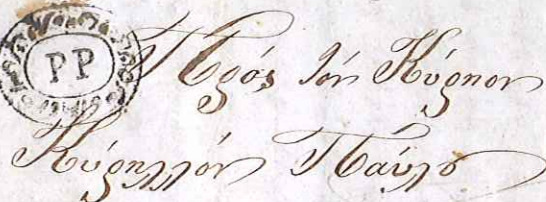 PP
Πρός τόν Κύρηον
Κύρηλλόν Παύλο